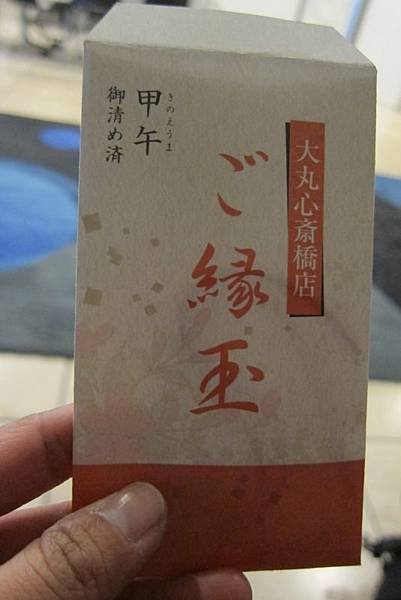 大丸心斎橋店
ご縁玉
甲午
きのえうま
御清め済